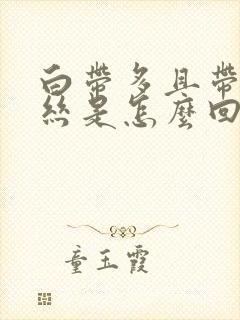 白帶多且帶
絲是怎麼回
童玉霞